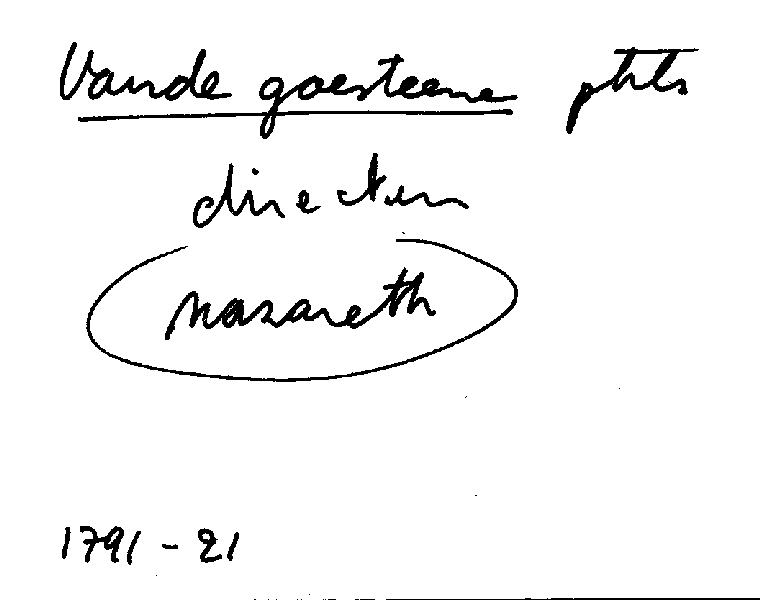 Vande goesteene phls
directeur
nazareth
1791 - 21